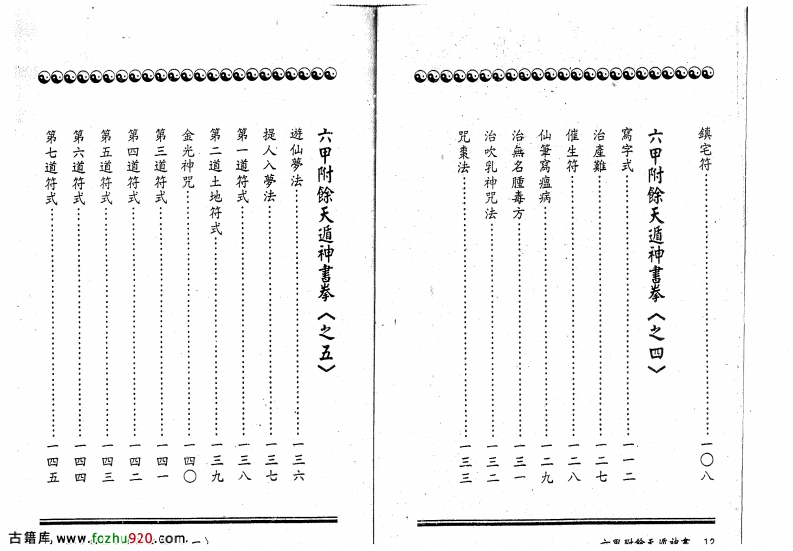 鎮宅符 一〇八
六甲附餘天遁神書拳〈之四〉
寫字式 一一二
治產難 一二七
催生符 一二八
仙筆寫瘟病 一二九
治無名腫毒方 一三一
治吹乳神咒法 一三二
咒棗法 一三三
12
六甲附餘天遁神書拳〈之五〉
遊仙夢法 一三六
提人入夢法 一三七
第一道符式 一三八
第二道土地符式 一三九
金光神咒 一四〇
第三道符式 一四一
第四道符式 一四二
第五道符式 一四三
第六道符式 一四四
第七道符式 一四五
古籍库, www.fozhu920.com.